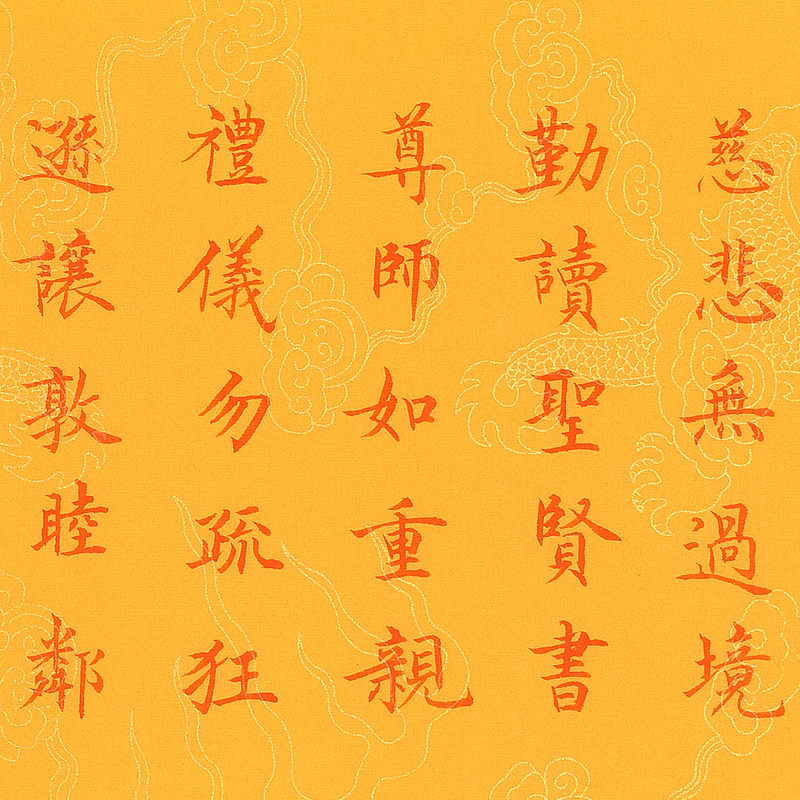 慈悲無過境
勤讀聖賢書
尊師如重親
禮儀勿疏狂
遜讓敦睦鄰